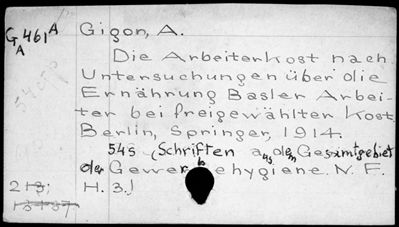 G 461 A
A
Gigon, A.
Die Arbeiterkost nach
Untersuchungen über die
Ernährung Basler Arbei-
ter bei freigewählter Kost
Berlin, Springer, 1914.
54s (Schriften aus dem Gesamtgebiet
der Gewerbehygiene. N. F.
H. 3.)